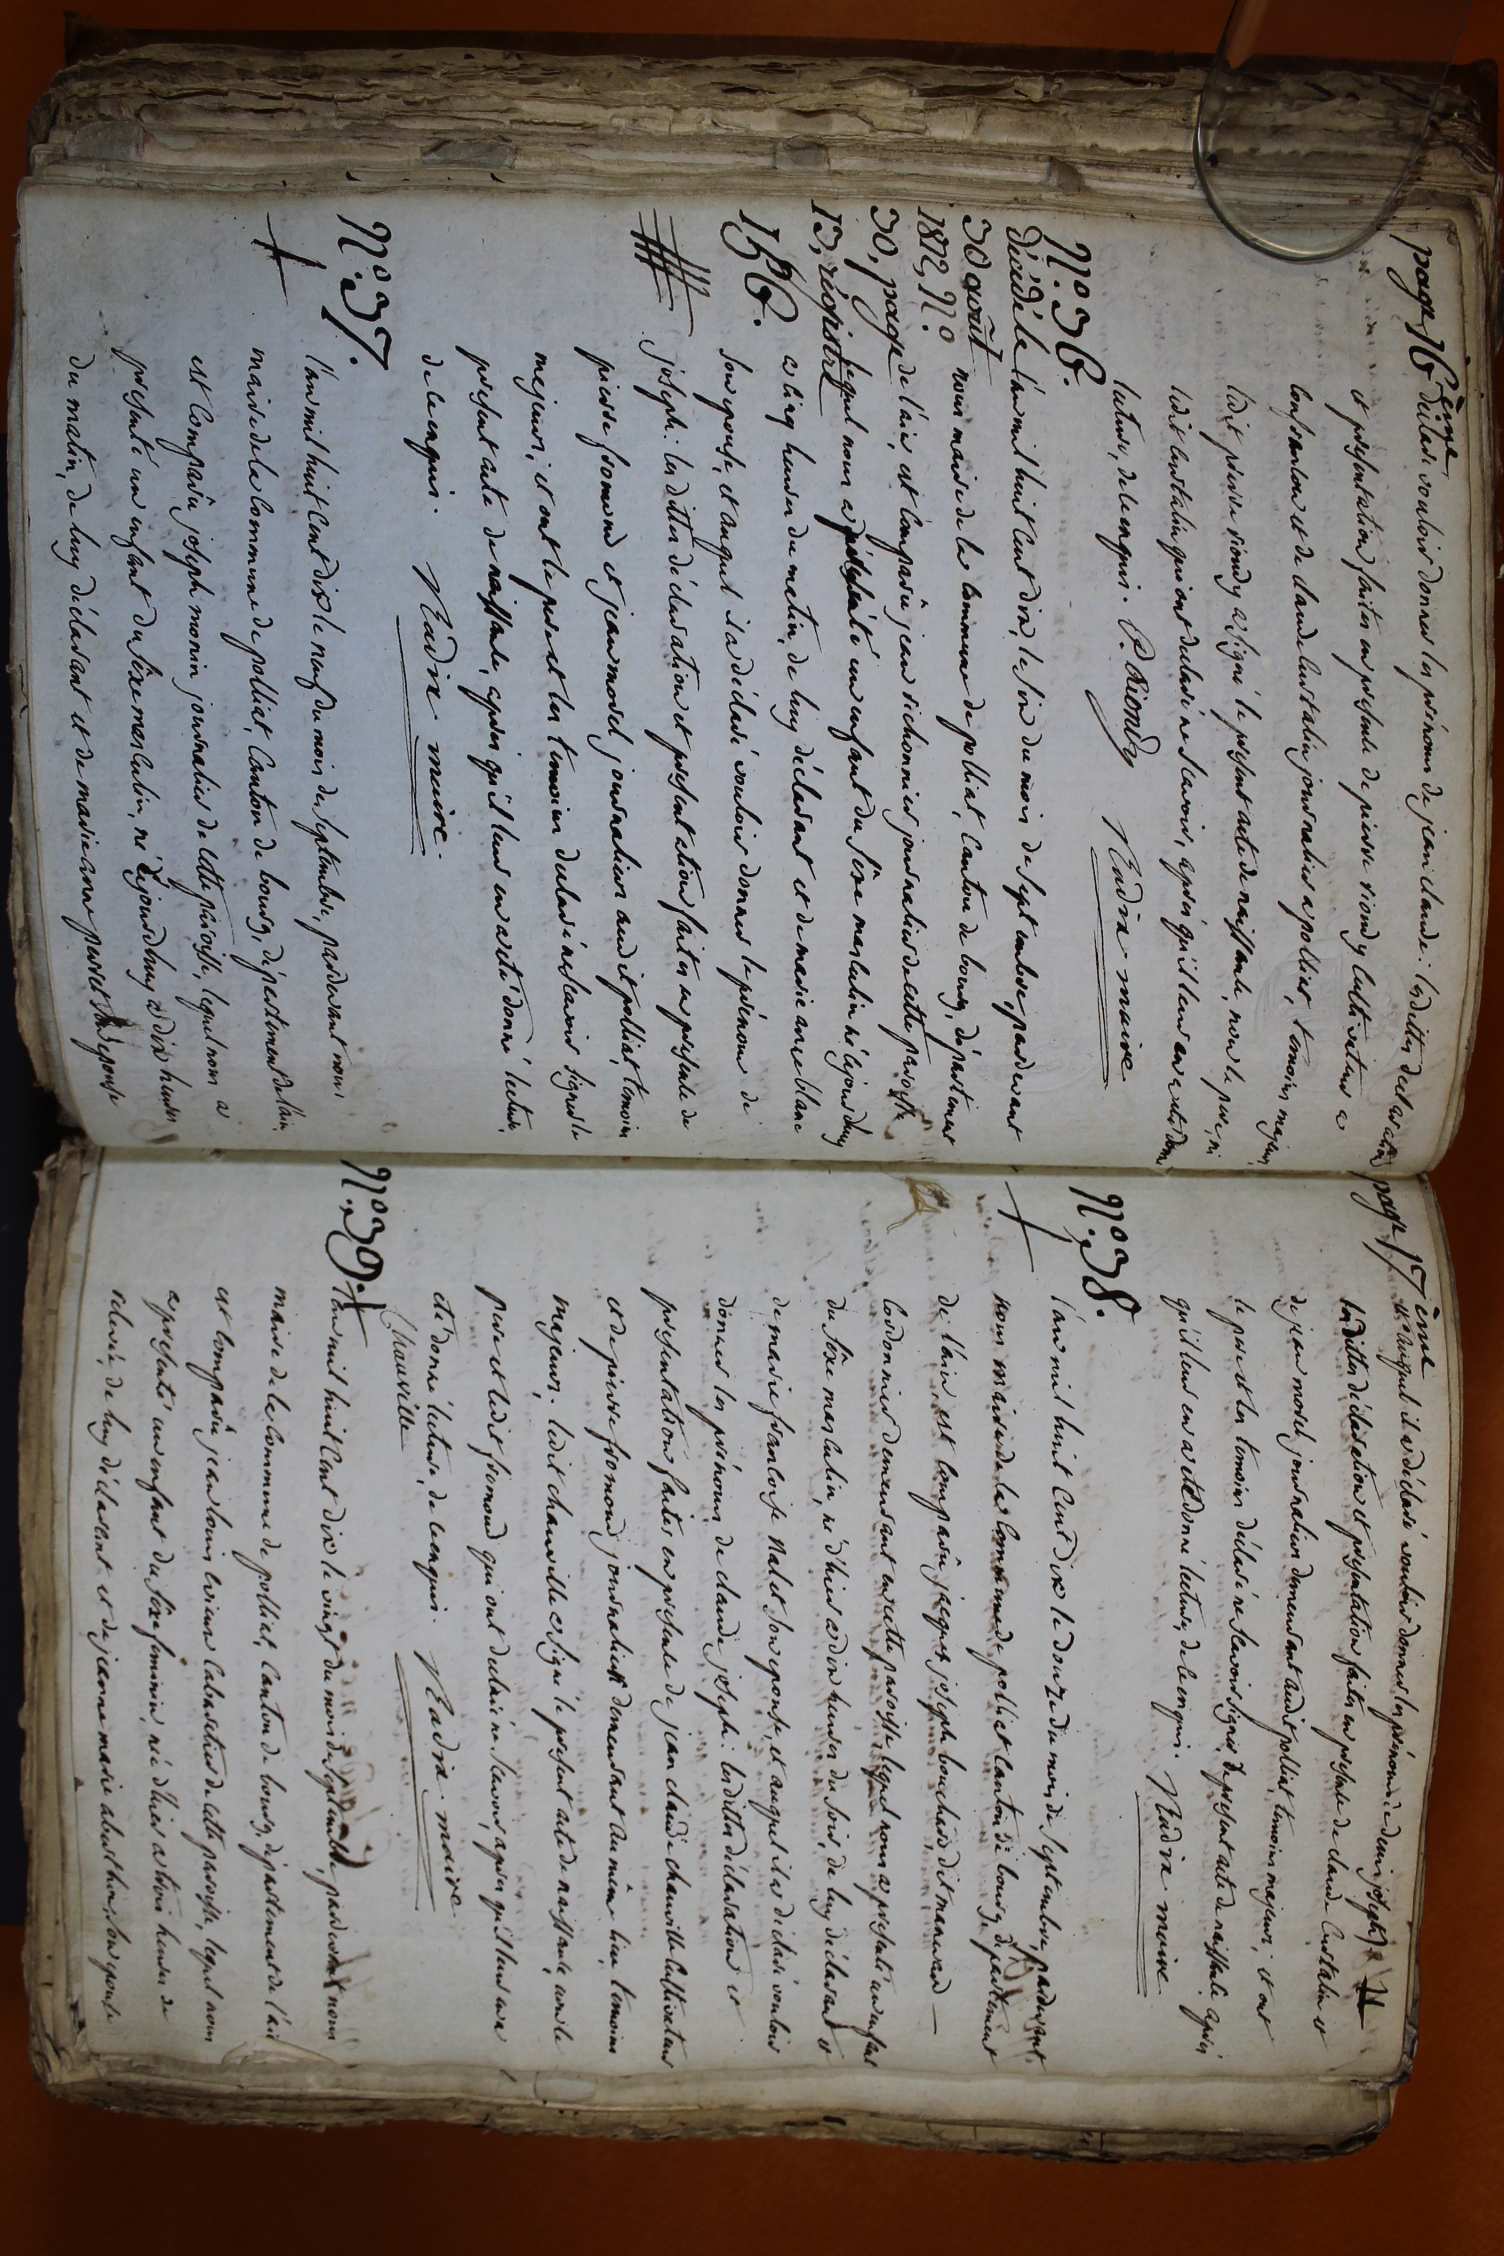 page 16ème
déclaré vouloir donner les prénoms de jean claude : lesdittes declaration
et présentation faites en présence de pierre riondy cultivateur a
confranson et de claude curtalin journalier a polliat, temoins majeurs
ledit pierre riondy a signé le present acte de naissance, non le pere, ni
ledit curtalin qui ont declaré ne scavoir, après qu'il leur en a eté donné
lecture, de ce enquis. P. Riondy Nadix maire
N.° 36.
décédé le
30 août
1812, N.°
30, page
13, régistre
156.
l'an mil huit cent dix, le six du mois de septembre pardevant
nous maire de la commune de polliat, canton de bourg, département
de l'ain, est comparû jean richonnier journalier de cette paroisse
lequel nous a présenté un enfant du sêxe masculin né cejourdhuy
a cinq heures du matin, de luy déclarant et de marie anne blanc
son epouse, et auquel il a déclaré vouloir donner le prénom de
joseph : lesdittes déclaration et présentation faites en présence de
pierre fromond et jean morel journaliers audit polliat, temoins
majeurs, et ont le pere et les temoins declaré ne scavoir signer le
présent acte de naissance, après qu'il leur en a eté donné lecture,
de ce enquis. Nadix maire.
N.° 37.
l'an mil huit cent dix le neuf du mois de septembre, pardevant nous
maire de la commune de polliat, canton de bourg, département de l'ain,
est comparû joseph monin journalier de cette paroisse, lequel nous a
présenté un enfant du sêxe masculin, né cejourdhuy a dix heures
du matin, de luy déclarant et de marie anne perret son épouse
page 17ème
et auquel il a déclaré vouloir donner les prénoms de denis joseph
lesdittes déclaration et présentation faites en présence de claude curtalin et
de jean morel journaliers demeurant audit polliat, temoins majeurs, et ont
le pere et les temoins déclaré ne scavoir signer le présent acte de naissance, après
qu'il leur en a eté donné lecture, de ce enquis. Nadix maire
N.° 38.
l'an mil huit cent dix le douze du mois de septembre, pardevant
nous maire de la commune de polliat canton de bourg, département
de l'ain, est comparû jacques joseph bouchard dit manceau —
cordonnier demeurant en cette paroisse lequel nous a présenté un enfant
du sêxe masculin, né d'hier a dix heures du soir, de luy déclarant et
de marie francoise nalet son epouse, et auquel il a déclaré vouloir
donner les prénoms de claude joseph : lesdittes déclaration et
présentation faites en présence de jean claude chauville cultivateur
et de pierre fromond journalier demeurant au même lieu, temoins
majeurs. ledit chauville a signé le présent acte de naissance, non le
pere et ledit fromond qui ont declaré ne scavoir, après qu'il leur en a
eté donné lecture, de ce enquis. Nadix maire
Chauville
N.° 39.
l'an mil huit cent dix le vingt du mois de septembre, pardevant nous
maire de la commune de polliat, canton de bourg, département de l'ain
est comparû jean louis cabaretier de cette paroisse, lequel nous
a présenté un enfant du sêxe feminin, née d'hier a trois heures de
relevée, de luy déclarant et de jeanne marie son epouse